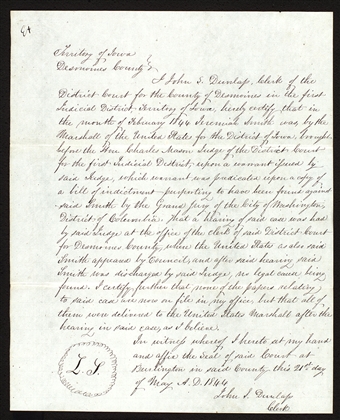 Territory of Iowa
Desmoines County
I John S. Dunlap, Clerk of the
District Court for the County of Desmoines in the first
Judicial District, Territory of Iowa, hereby certify that in
the month of February 1844 Jeremiah Smith was by the
Marshall of the United States for the District of Iowa, brought
before the Hon Charles Mason Judge of the District Court
for the first Judicial District, upon a warrant issued by
said Judge, which warrant was predicated upon a copy of
a bill of indictment purporting to have been found against
said Smith by the Grand Jury of the City of Washington
District of Columbia, that a hearing of said case was had
by said Judge at the office of the clerk of said District Court
for Desmoines County, when the United States as also said
Smith appeared by Council, and after said hearing said
Smith was discharged by said Judge, no legal cause being
found. I certify further that none of the papers relating
to said case are now on file in my office, but that all of
them were delivered to the United States Marshall after the
hearing in said case, as I believe.
In witness whereof I hereto set my hand
and affix the seal of said Court at
Burlington in said County this 21st day
of May A.D. 1844
L S
John S. Dunlap
Clerk